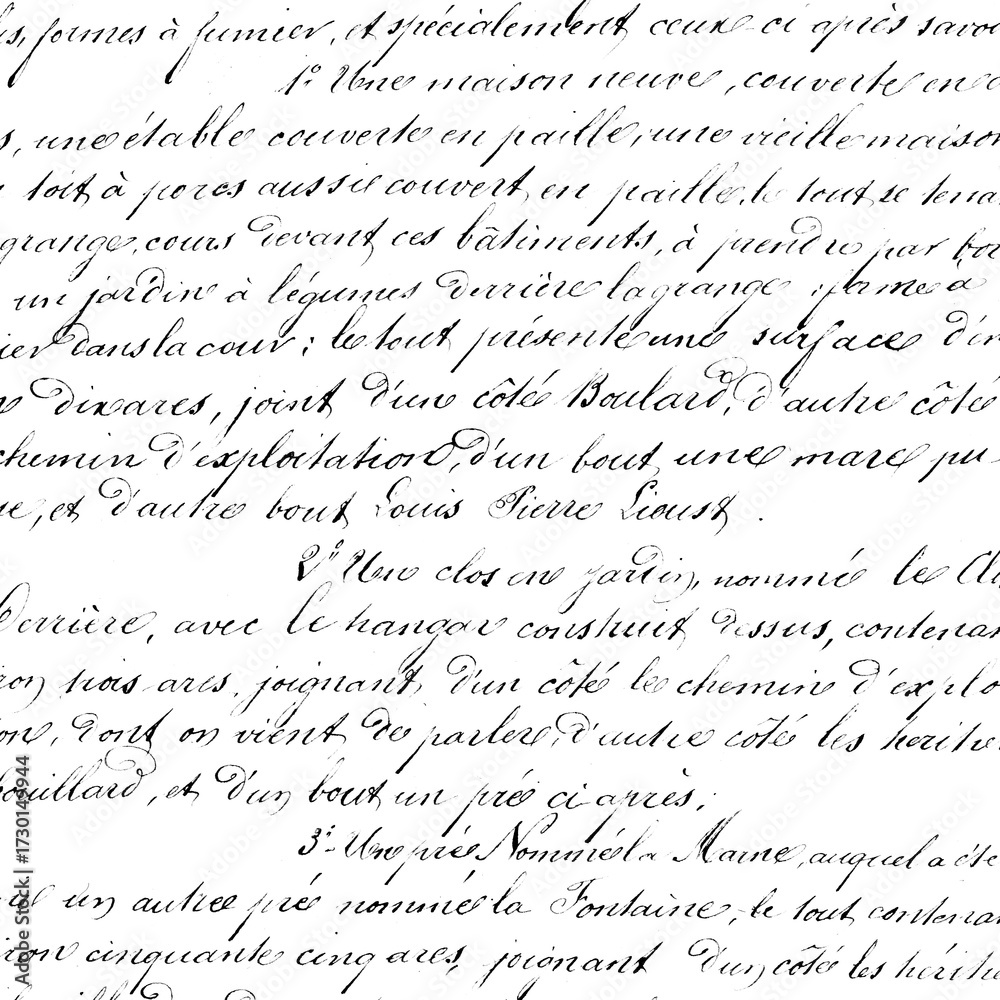 formes à fumier, et spécialement ceux-ci après savoi
1° Une maison neuve, couverte en
s, une étable couverte en paille, une vieille maison
toit à porcs aussi couvert en paille, le tout se tena
grange, cours devant ces bâtiments, à prendre par bo
un jardin à légumes derrière la grange, forme à
ier dans la cour; le tout présente une surface d'en
n dix ares, joint d'un côté Boulard, d'autre côté
chemin d'exploitation, d'un bout une mare pu-
ue, et d'autre bout Louis Pierre Lioust.
2° Un clos en jardin, nommé le Cl
Derrière, avec le hangar construit dessus, contenan
ron trois ares, joignant d'un côté le chemin d'explo
ion, dont on vient de parler, d'autre côté les héritie
ouillard, et d'un bout un pré ci après;
3° Un pré Nommé la Marne, auquel a été
un autre pré nommé la Fontaine, le tout contenan
iron cinquante cinq ares, joignant d'un côté les hérit
Adobe Stock | #1730149944